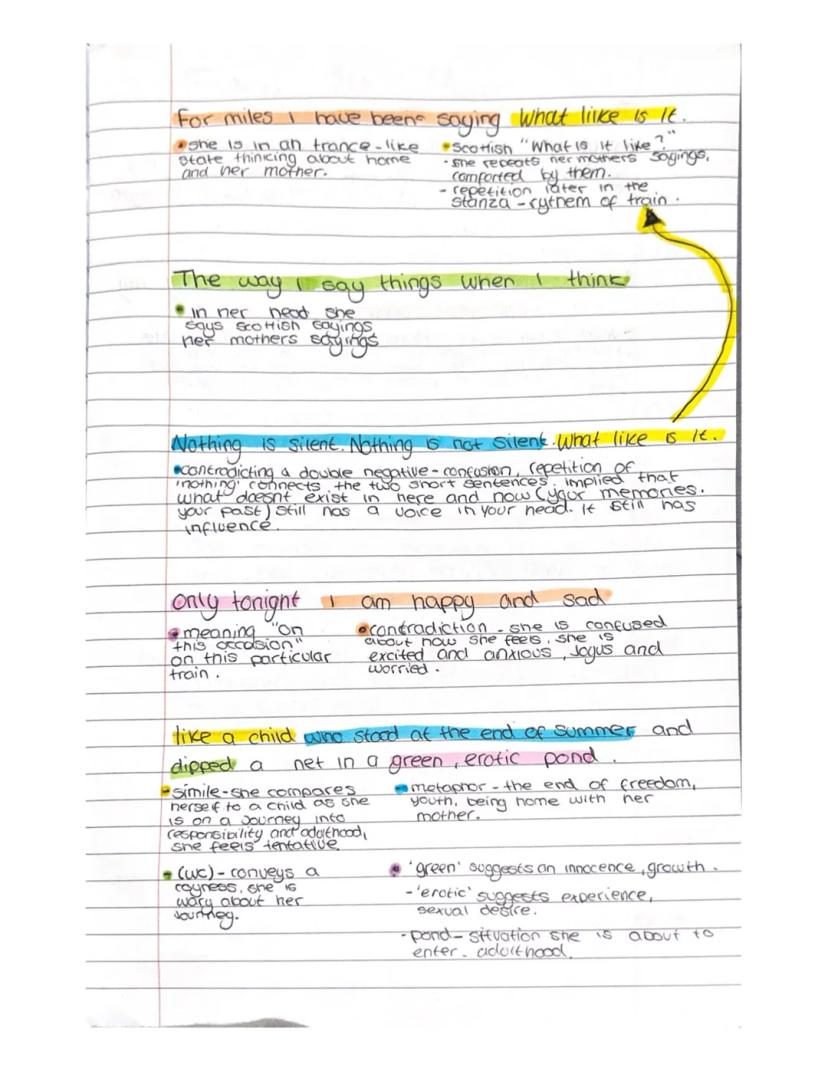 For miles I have been saying What like is it.
•she is in an trance-like
state thinking about home
and her mother.
•Scottish "What is it like?"
-she repeats her mothers sayings,
comforted by them.
- repetition later in the
stanza - rythem of train.
The way I say things when I think
• in her head she
says scottish sayings
her mothers sayings
Nothing is silent. Nothing is not silent. What like is it.
•contradicting a double negative-confusion, repetition of
'nothing' connects the two short sentences, implied that
what doesnt exist in here and now (your memories.
your past) still has a voice in your head. It still has
influence.
only tonight I am happy and sad
•meaning "on
this occasion"
on this particular
train.
•contradiction - she is confused
about how she feels, she is
excited and anxious, joyus and
worried.
like a child who stood at the end of summer and
dipped a net in a green, erotic pond.
•simile-she compares
herself to a child as she
is on a journey into
responsibility and adulthood,
she feels tentative
•metaphor - the end of freedom,
youth, being home with her
mother.
• (wc) - conveys a
coyness, she is
wary about her
journey.
• 'green' suggests an innocence, growth.
-'erotic' suggests experience,
sexual desire.
-pond- situation she is about to
enter. adulthood.